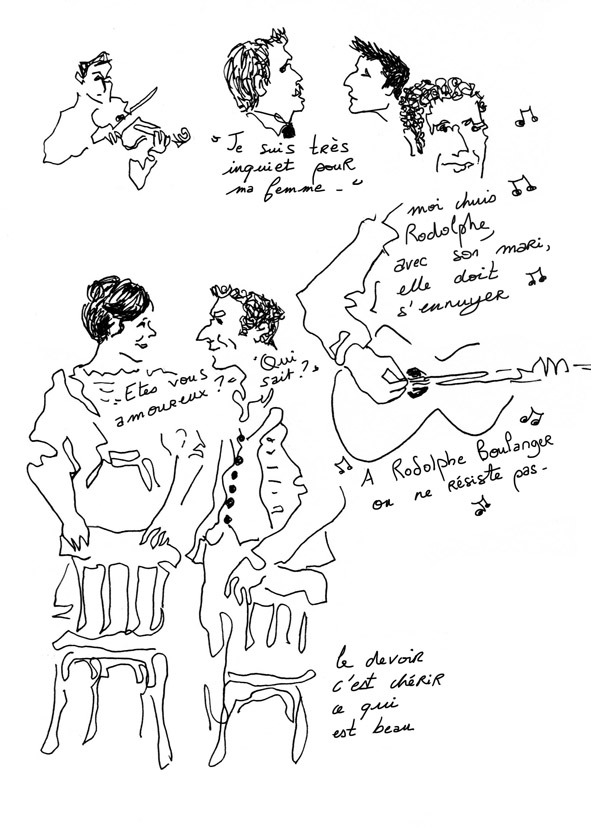 "Je suis très
inquiet pour
ma femme -"
moi chuis
Rodolphe,
avec son mari,
elle doit
s'ennuyer
"- Etes vous
amoureux ?"
"Qui
sait ?"
A Rodolphe Boulanger
on ne résiste pas -
le devoir
c'est chérir
ce qui
est beau